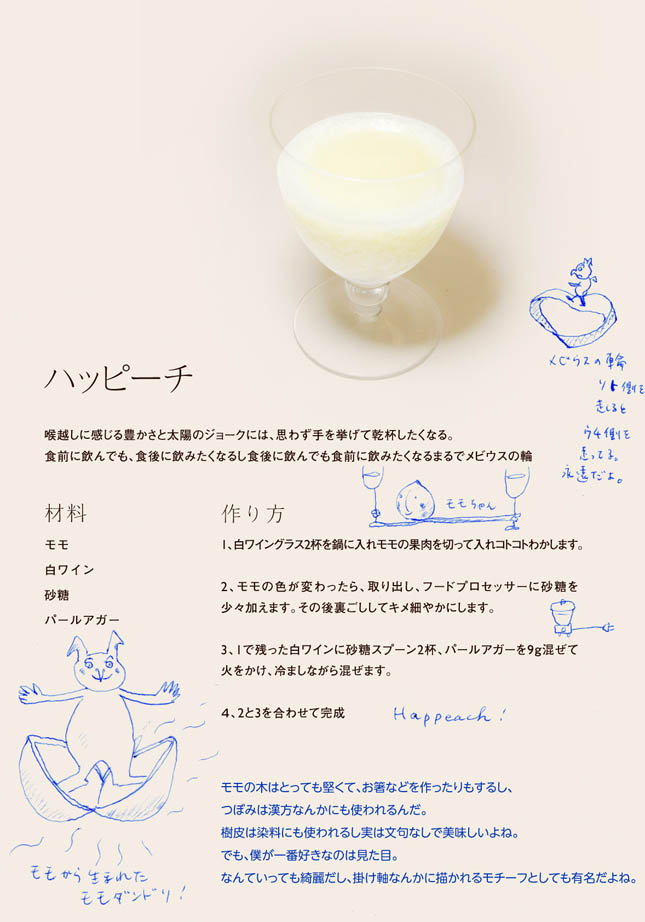 メビウスの輪
ソト側を
走ると
ウチ側を
走ってる。
永遠だよ。
ハッピーチ
喉越しに感じる豊かさと太陽のジョークには、思わず手を挙げて乾杯したくなる。
食前に飲んでも、食後に飲みたくなるし食後に飲んでも食前に飲みたくなるまるでメビウスの輪
材料
モモ
白ワイン
砂糖
パールアガー
作り方
モモちゃん
1、白ワイングラス2杯を鍋に入れモモの果肉を切って入れコトコトわかします。
2、モモの色が変わったら、取り出し、フードプロセッサーに砂糖を
少々加えます。その後裏ごししてキメ細やかにします。
3、1で残った白ワインに砂糖スプーン2杯、パールアガーを9g混ぜて
火をかけ、冷ましながら混ぜます。
4、2と3を合わせて完成
Happeach!
モモの木はとっても堅くて、お箸などを作ったりもするし、
つぼみは漢方なんかにも使われるんだ。
樹皮は染料にも使われるし実は文句なしで美味しいよね。
でも、僕が一番好きなのは見た目。
なんていっても綺麗だし、掛け軸なんかに描かれるモチーフとしても有名だよね。
モモから生まれた
モモダンドリ!